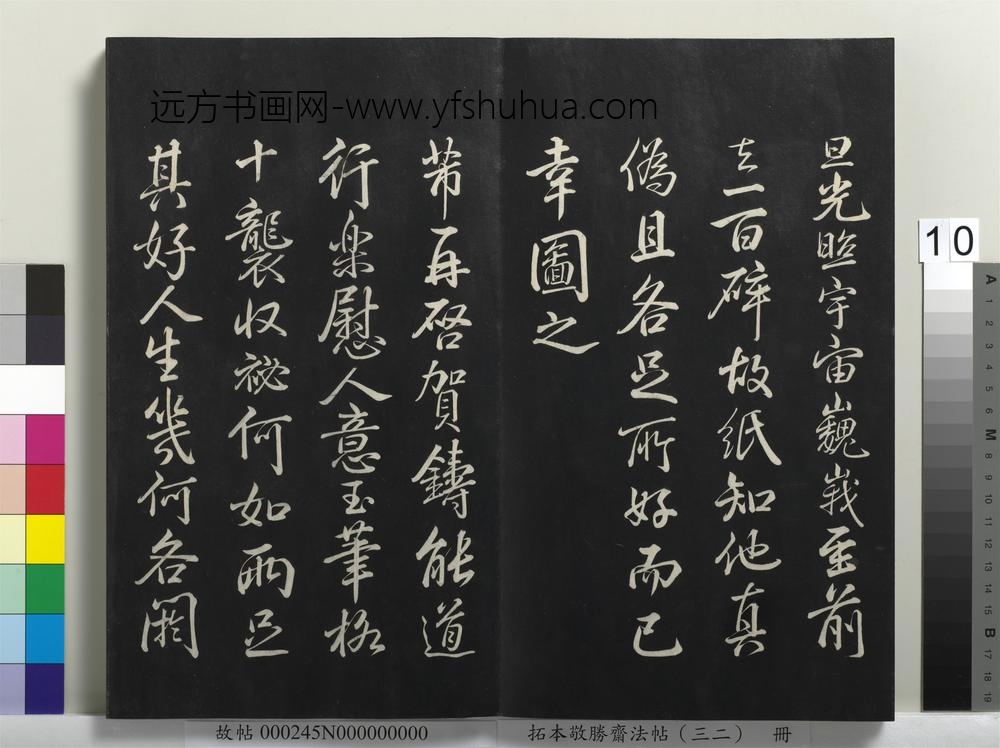 远方书画网-www.yfshuhua.com
旦光照宇宙巍峩至前
去一百碎故紙知他真
偽且各足所好而已
幸圖之
芾再啓賀鑄能道
行楽慰人意玉筆格
十襲收祕何如兩足
其好人生幾何各閟
10
故帖 000245N000000000
拓本敬勝齋法帖（三二） 冊
A 1 2 3 4 5 6 M 8 9 10 11 12 13 14 15 B 17 18 19